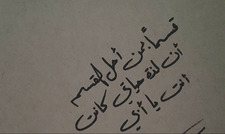 قسماً بمن أحل القسم
أن لذة حياتي كانت
أنت يا أبي